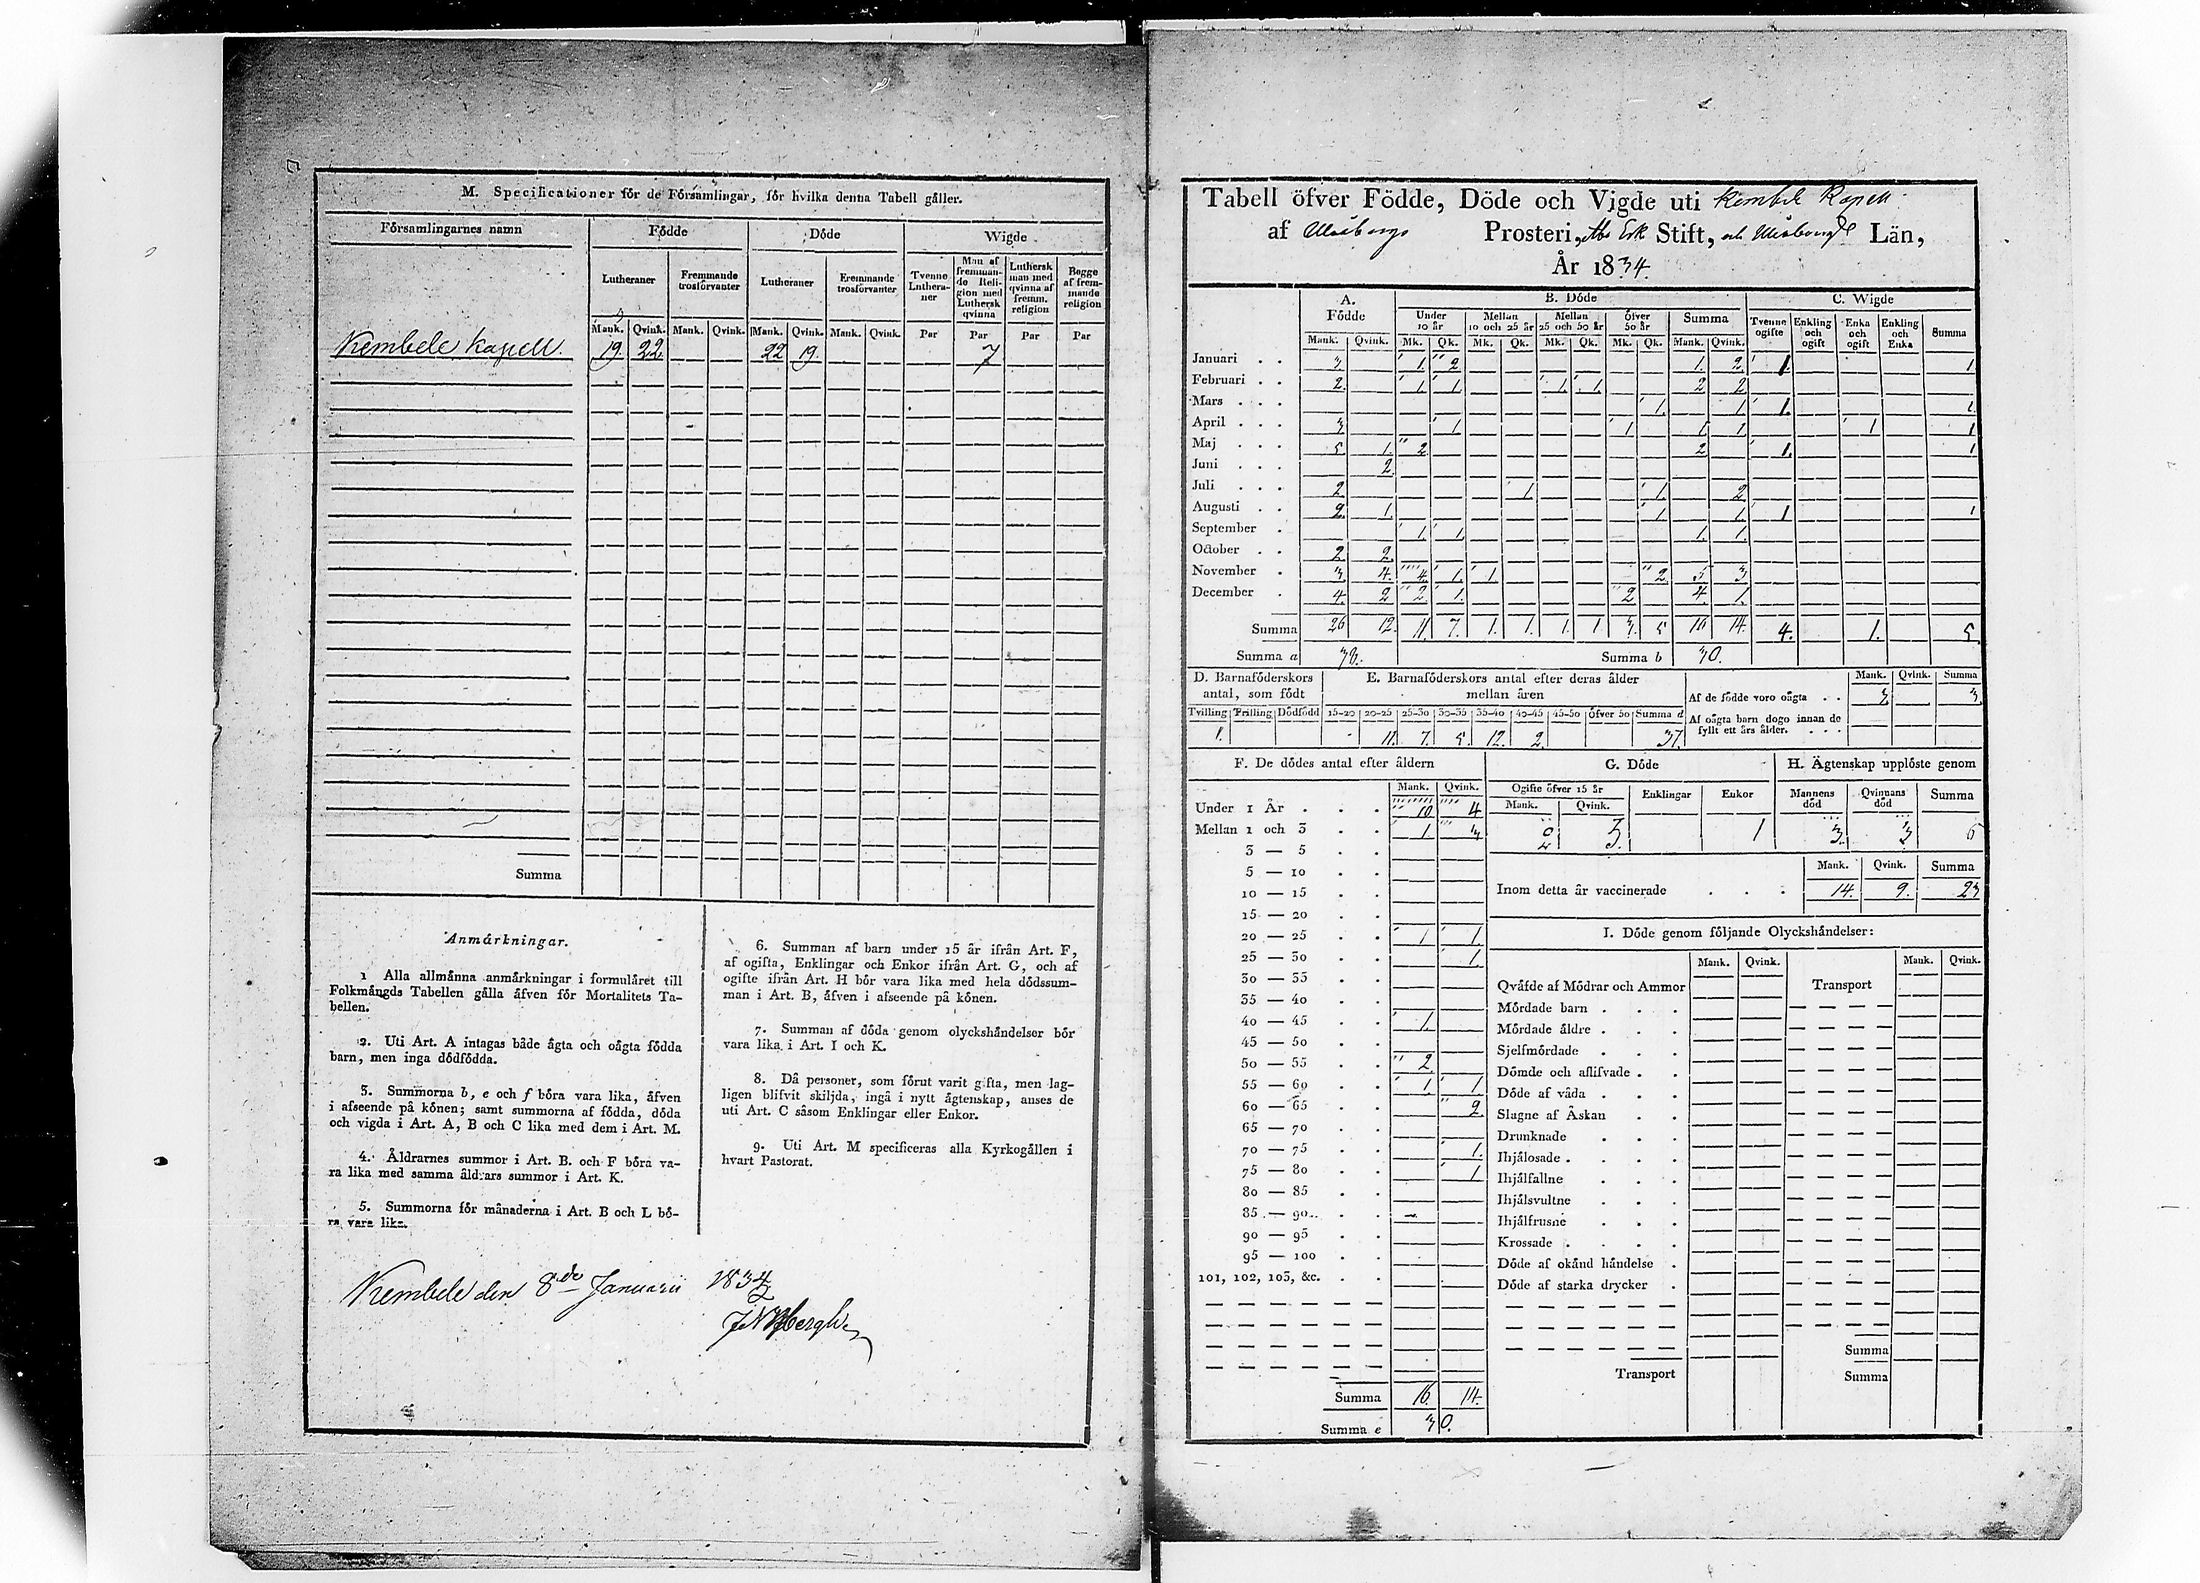 M. Specificationer för de Församlingar, för hvilka denna Tabell gäller.
Församlingarnes namn Födde Döde Wigde
Lutheraner Fremmande trosförvanter Lutheraner Fremmande trosförvanter Tvenne Lutheraner Man af fremmande Religion med Luthersk qvinna Luthersk man med qvinna af fremm. religion Begge af fremmande religion
Mank. Qvink. Mank. Qvink. Mank. Qvink. Mank. Qvink. Par Par Par Par
Kembele Kapell. 19. 22 22 19. 7
Summa
Anmärkningar.
1 Alla allmänna anmärkningar i formuläret till
Folkmängds Tabellen gälla äfven för Mortalitets Ta-
bellen.
2. Uti Art. A intagas både ägta och oägta födda
barn, men inga dödfödda.
3. Summorna b, e och f böra vara lika, äfven
i afseende på könen; samt summorna af födda, döda
och vigda i Art. A, B och C lika med dem i Art. M.
4. Åldrarnes summor i Art. B. och F böra va-
ra lika med samma åldrars summor i Art. K.
5. Summorna för månaderna i Art. B och L bö-
ra vara lika.
6. Summan af barn under 15 år ifrån Art. F,
af ogifta, Enklingar och Enkor ifrån Art. G, och af
ogifte ifrån Art. H bör vara lika med hela dödssum-
man i Art. B, äfven i afseende på könen.
7. Summan af döda genom olyckshändelser bör
vara lika i Art. I och K.
8. Då personer, som förut varit gifta, men lag-
ligen blifvit skiljda, ingå i nytt ägtenskap, anses de
uti Art. C såsom Enklingar eller Enkor.
9. Uti Art. M specificeras alla Kyrkogällen i
hvart Pastorat.
Kembele den 8de Januarii 1834
Tabell öfver Födde, Döde och Vigde uti Kembele Kapell
af Uleåborgs Prosteri, Åbo Erk Stift, och Uleåborgs Län,
År 1834.
A. Födde B. Döde C. Wigde
Under 10 år Mellan 10 och 25 år Mellan 25 och 50 år Öfver 50 år Summa Tvenne ogifte Enkling och ogift Enka och ogift Enkling och Enka Summa
Mank. Qvink. Mk. Qk. Mk. Qk. Mk. Qk. Mk. Qk. Mank. Qvink.
Januari 3 1. 2 1. 2. 1. 1
Februari 2. 1 1 1. 1. 2 2
Mars 1. 1 1. 1.
April 3 1 1 1 1 1 1
Maj 5 1. 2 2 1. 1
Juni 2
Juli 2. 1 1. 2
Augusti 2. 1. 1 1. 1 1
September 1 1. 1. 1.
October 2 2
November 3 4. 4. 1. 1 2. 5 3
December 4. 2 2 1. 2 4. 1.
Summa 26 12. 11. 7. 1. 1. 1. 1 3. 5 16 14. 4. 1. 5.
Summa a 38. Summa b 30.
D. Barnaföderskors antal, som födt
E. Barnaföderskors antal efter deras ålder mellan åren
Mank. Qvink. Summa
Af de födde voro oägta 3 3.
Af oägta barn dogo innan de
fyllt ett års ålder.
Tvilling Trilling Dödfödd 15-20 20-25 25-30 30-35 35-40 40-45 45-50 öfver 50 Summa d
1. 11. 7. 5. 12. 2. 37.
F. De dödes antal efter åldern
Mank. Qvink.
Under 1 År 10 4
Mellan 1 och 3 1 3
3 — 5
5 — 10
10 — 15
15 — 20
20 — 25 1 1
25 — 30 1
30 — 35
35 — 40
40 — 45 1.
45 — 50
50 — 55 2.
55 — 60 1 1
60 — 65 2.
65 — 70
70 — 75 1.
75 — 80 1
80 — 85
85 — 90
90 — 95
95 — 100
101, 102, 103, &c.
Summa 16 14.
Summa e 30.
G. Döde
Ogifte öfver 15 år Enklingar Enkor
Mank. Qvink.
2 3. 1
H. Ägtenskap upplöste genom
Mannens död Qvinnans död Summa
3. 3 6
Mank. Qvink. Summa
Inom detta år vaccinerade 14. 9. 23
I. Döde genom följande Olyckshändelser:
Mank. Qvink. Mank. Qvink.
Qväfde af Mödrar och Ammor Transport
Mördade barn
Mördade äldre
Sjelfmördade
Dömde och aflifvade
Döde af våda
Slagne af Åskan
Drunknade
Ihjälosade
Ihjälfallne
Ihjälsvultne
Ihjälfrusne
Krossade
Döde af okänd händelse
Döde af starka drycker
Summa
Transport Summa